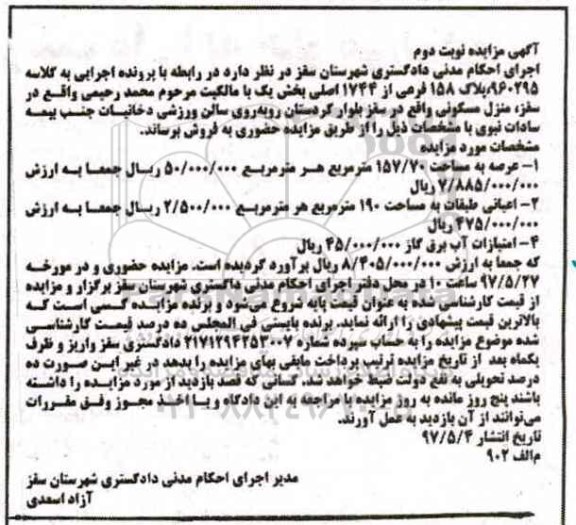 آگهی مزایده نوبت دوم
اجرای احکام مدنی دادگستری شهرستان سقز در نظر دارد در رابطه با پرونده اجرایی به کلاسه
۹۶۰۲۹۵،پلاک ۱۵۸ فرعی از ۱۷۴۴ اصلی بخش یک با مالکیت مرحوم محمد رحیمی واقع در
سقز، منزل مسکونی واقع در سقز بلوار کردستان روبه‌روی سالن ورزشی دخانیات جنب بیمه
سادات نبوی با مشخصات ذیل را از طریق مزایده حضوری به فروش برساند.
مشخصات مورد مزایده
۱- عرصه به مساحت ۱۵۷/۷۰ مترمربع هر مترمربع ۵۰/۰۰۰/۰۰۰ ریال جمعا به ارزش
۷/۸۸۵/۰۰۰/۰۰۰ ریال
۲- اعیانی طبقات به مساحت ۱۹۰ مترمربع هر مترمربع ۲/۵۰۰/۰۰۰ ریال جمعا به ارزش
۴۷۵/۰۰۰/۰۰۰ ریال
۴- امتیازات آب برق گاز ۴۵/۰۰۰/۰۰۰ ریال
که جمعا به ارزش ۸/۴۰۵/۰۰۰/۰۰۰ ریال برآورد گردیده است. مزایده حضوری و در مورخه
۹۷/۵/۲۷ ساعت ۱۰ در محل دفتر اجرای احکام مدنی داگستری شهرستان سقز برگزار و مزایده
از قیمت کارشناسی شده به عنوان قیمت پایه شروع می‌شود و برنده مزایده کسی است که
بالاترین قیمت پیشهادی را ارائه نماید. برنده بایستی فی المجلس ده درصد قیمت کارشناسی
شده موضوع مزایده را به حساب سپرده شماره ۲۱۷۱۲۹۴۲۵۳۰۰۷ دادگستری سقز واریز و ظرف
یکماه بعد از تاریخ مزایده ترتیب پرداخت مابقی بهای مزایده را بدهد در غیر این صورت ده
درصد تحویلی به نفع دولت ضبط خواهد شد. کسانی که قصد بازدید از مورد مزایده را داشته
باشند پنج روز مانده به روز مزایده با مراجعه به این دادگاه و با اخذ مجوز وفق مقررات
می‌توانند از آن بازدید به عمل آورند.
تاریخ انتشار ۹۷/۵/۴
م‌الف ۹۰۲
مدیر اجرای احکام مدنی دادگستری شهرستان سقز
آزاد اسعدی